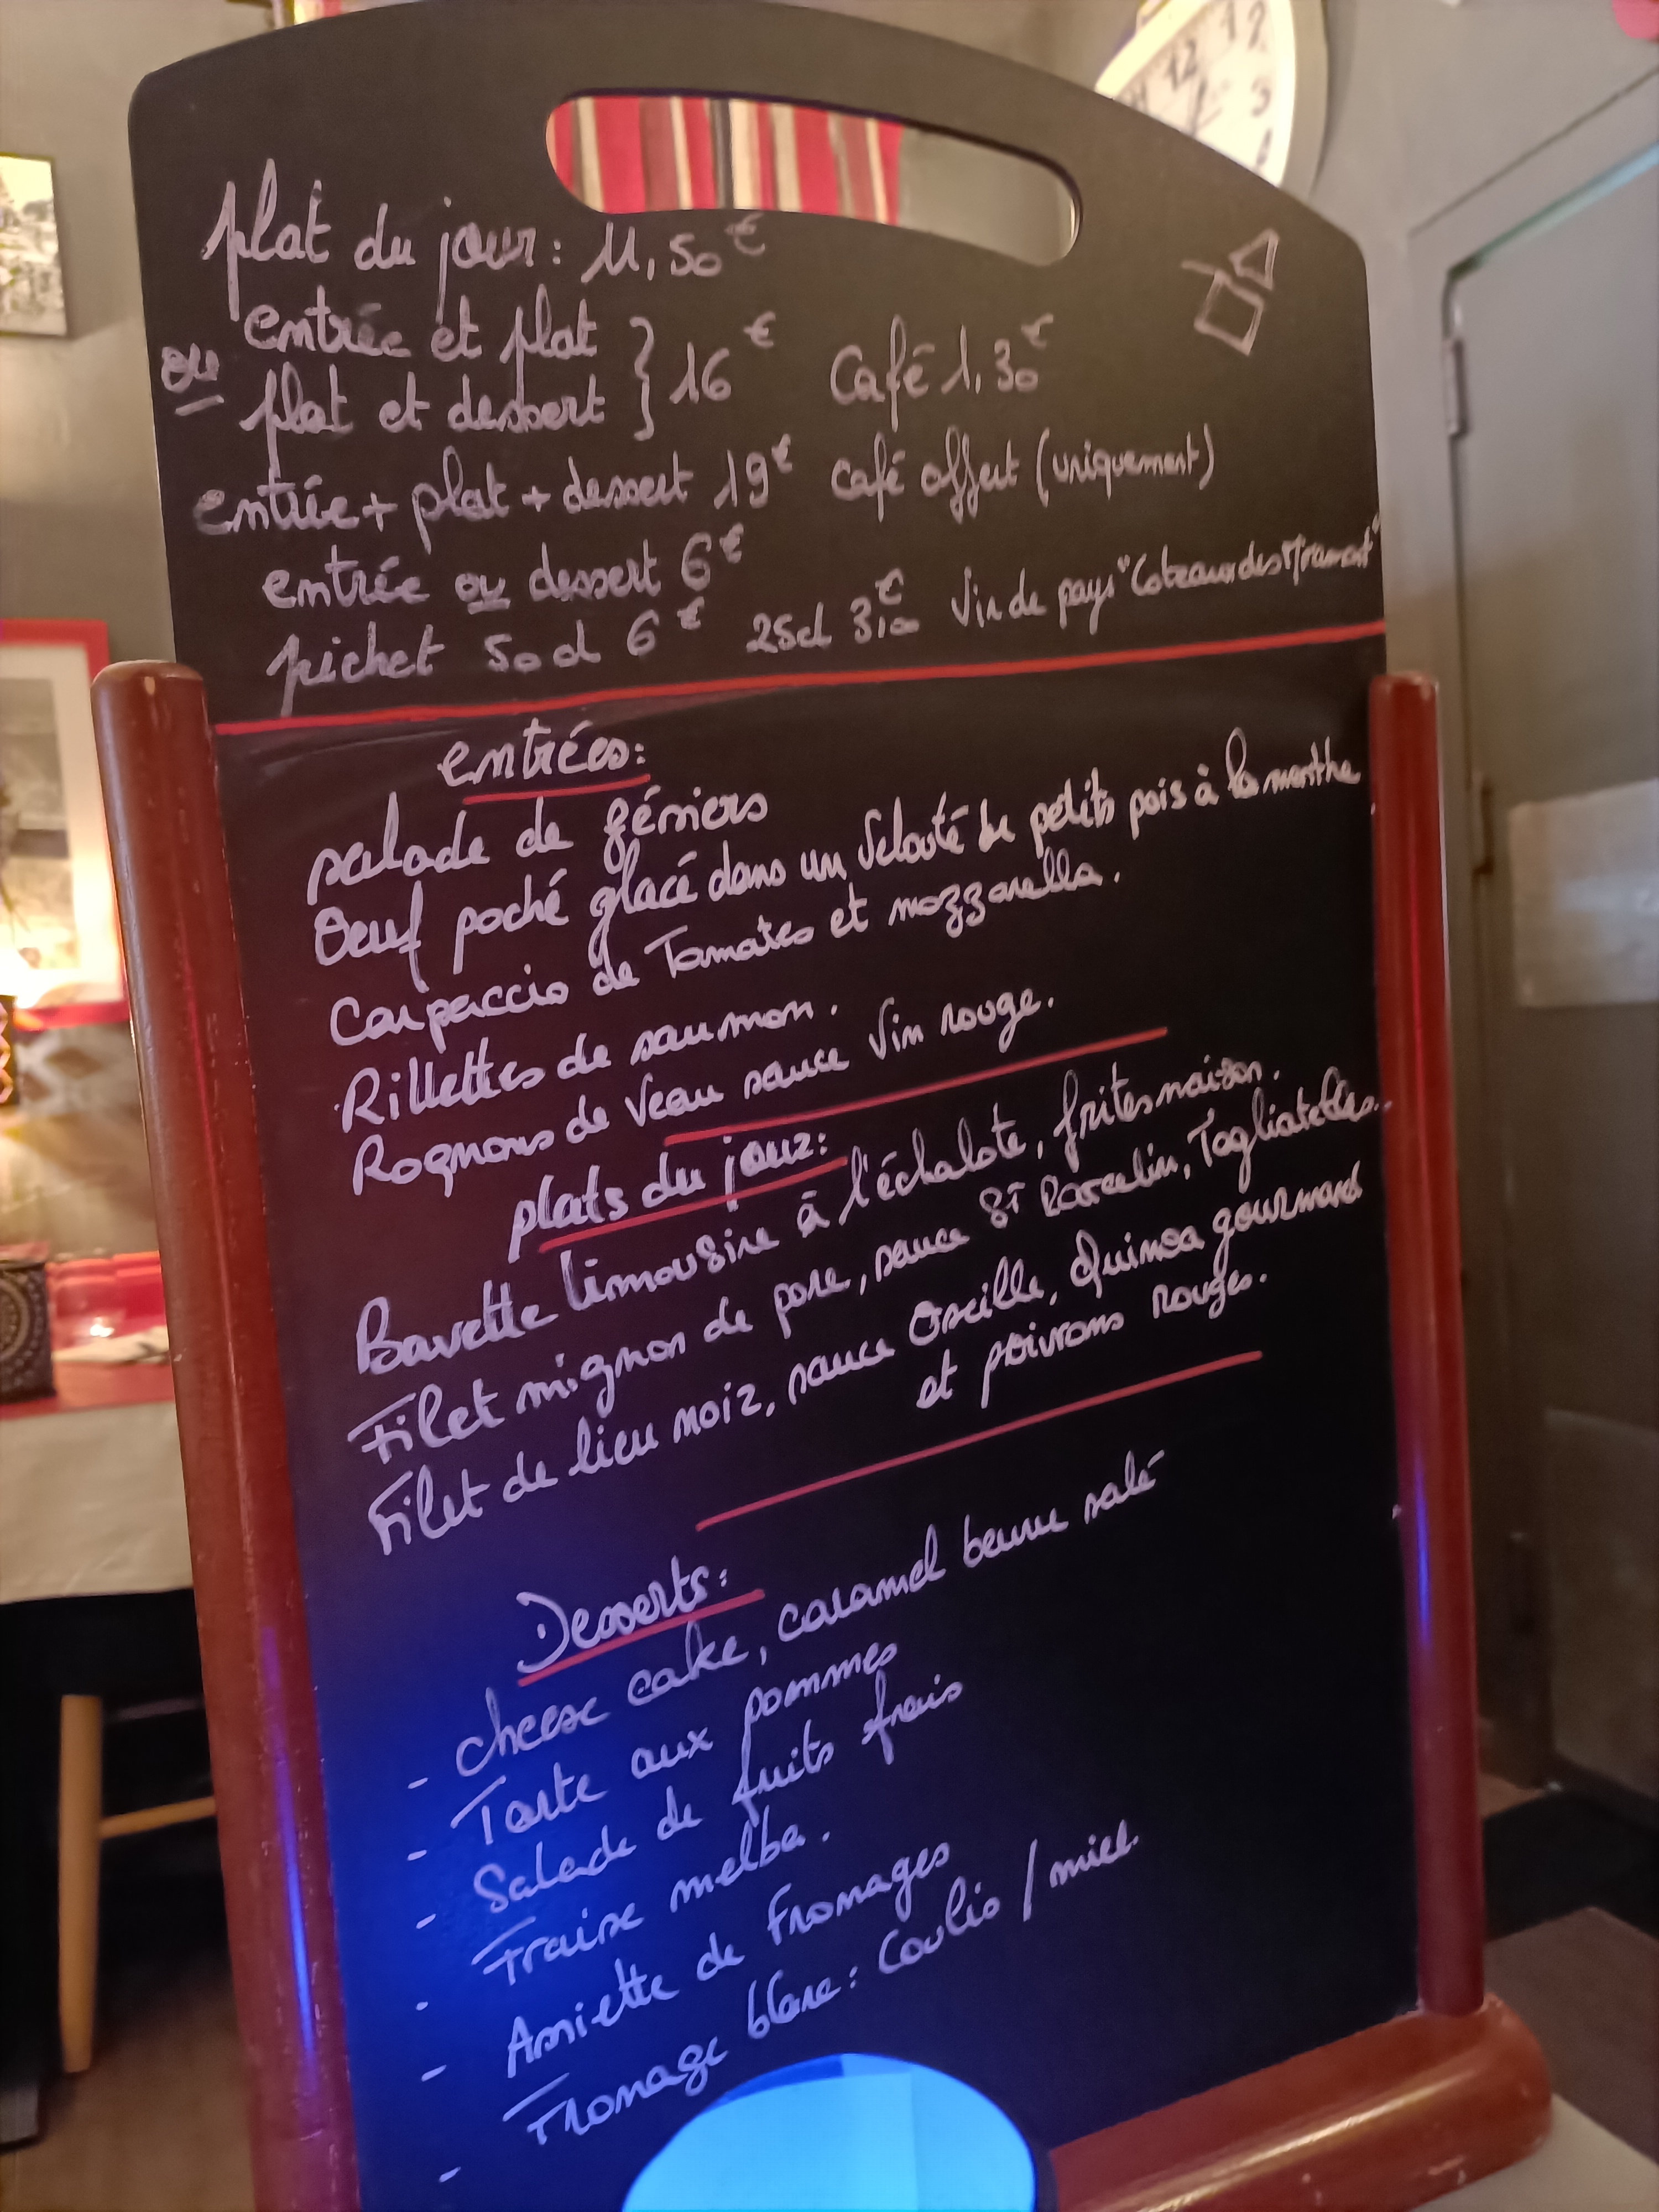 plat du jour : 11,50 €
entrée et plat
ou
plat et dessert } 16 € Café 1,30 €
entrée + plat + dessert 19 € café offert (uniquement)
entrée ou dessert 6 €
pichet 50 cl 6 € 25cl 3,10 € Vin de pays "Coteaux des
entrées :
salade de gésiers
Oeuf poché glacé dans un Velouté de petits pois à la menthe
Carpaccio de Tomates et mozzarella.
Rillettes de saumon.
Rognons de Veau sauce Vin rouge.
plats du jour :
Bavette limousine à l'échalote, frites maison.
Filet mignon de porc, sauce St Marcelin, Tagliatelles..
Filet de lieu noir, sauce Oseille, Quinoa gourmand
et poivrons rouges.
Desserts :
- cheese cake, caramel beurre salé
- Tarte aux pommes
- Salade de fruits frais
- Fraise melba.
- Assiette de Fromages
- Fromage blanc : Coulis / miel.
12